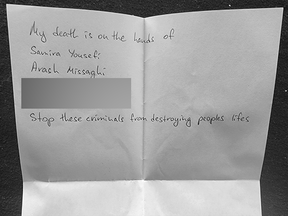 My death is on the hands of
Samira Yousefi
Arash Missaghi
Stop these criminals from destroying peoples lifes